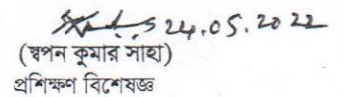 24.05.2022
(স্বপন কুমার সাহা)
প্রশিক্ষণ বিশেষজ্ঞ